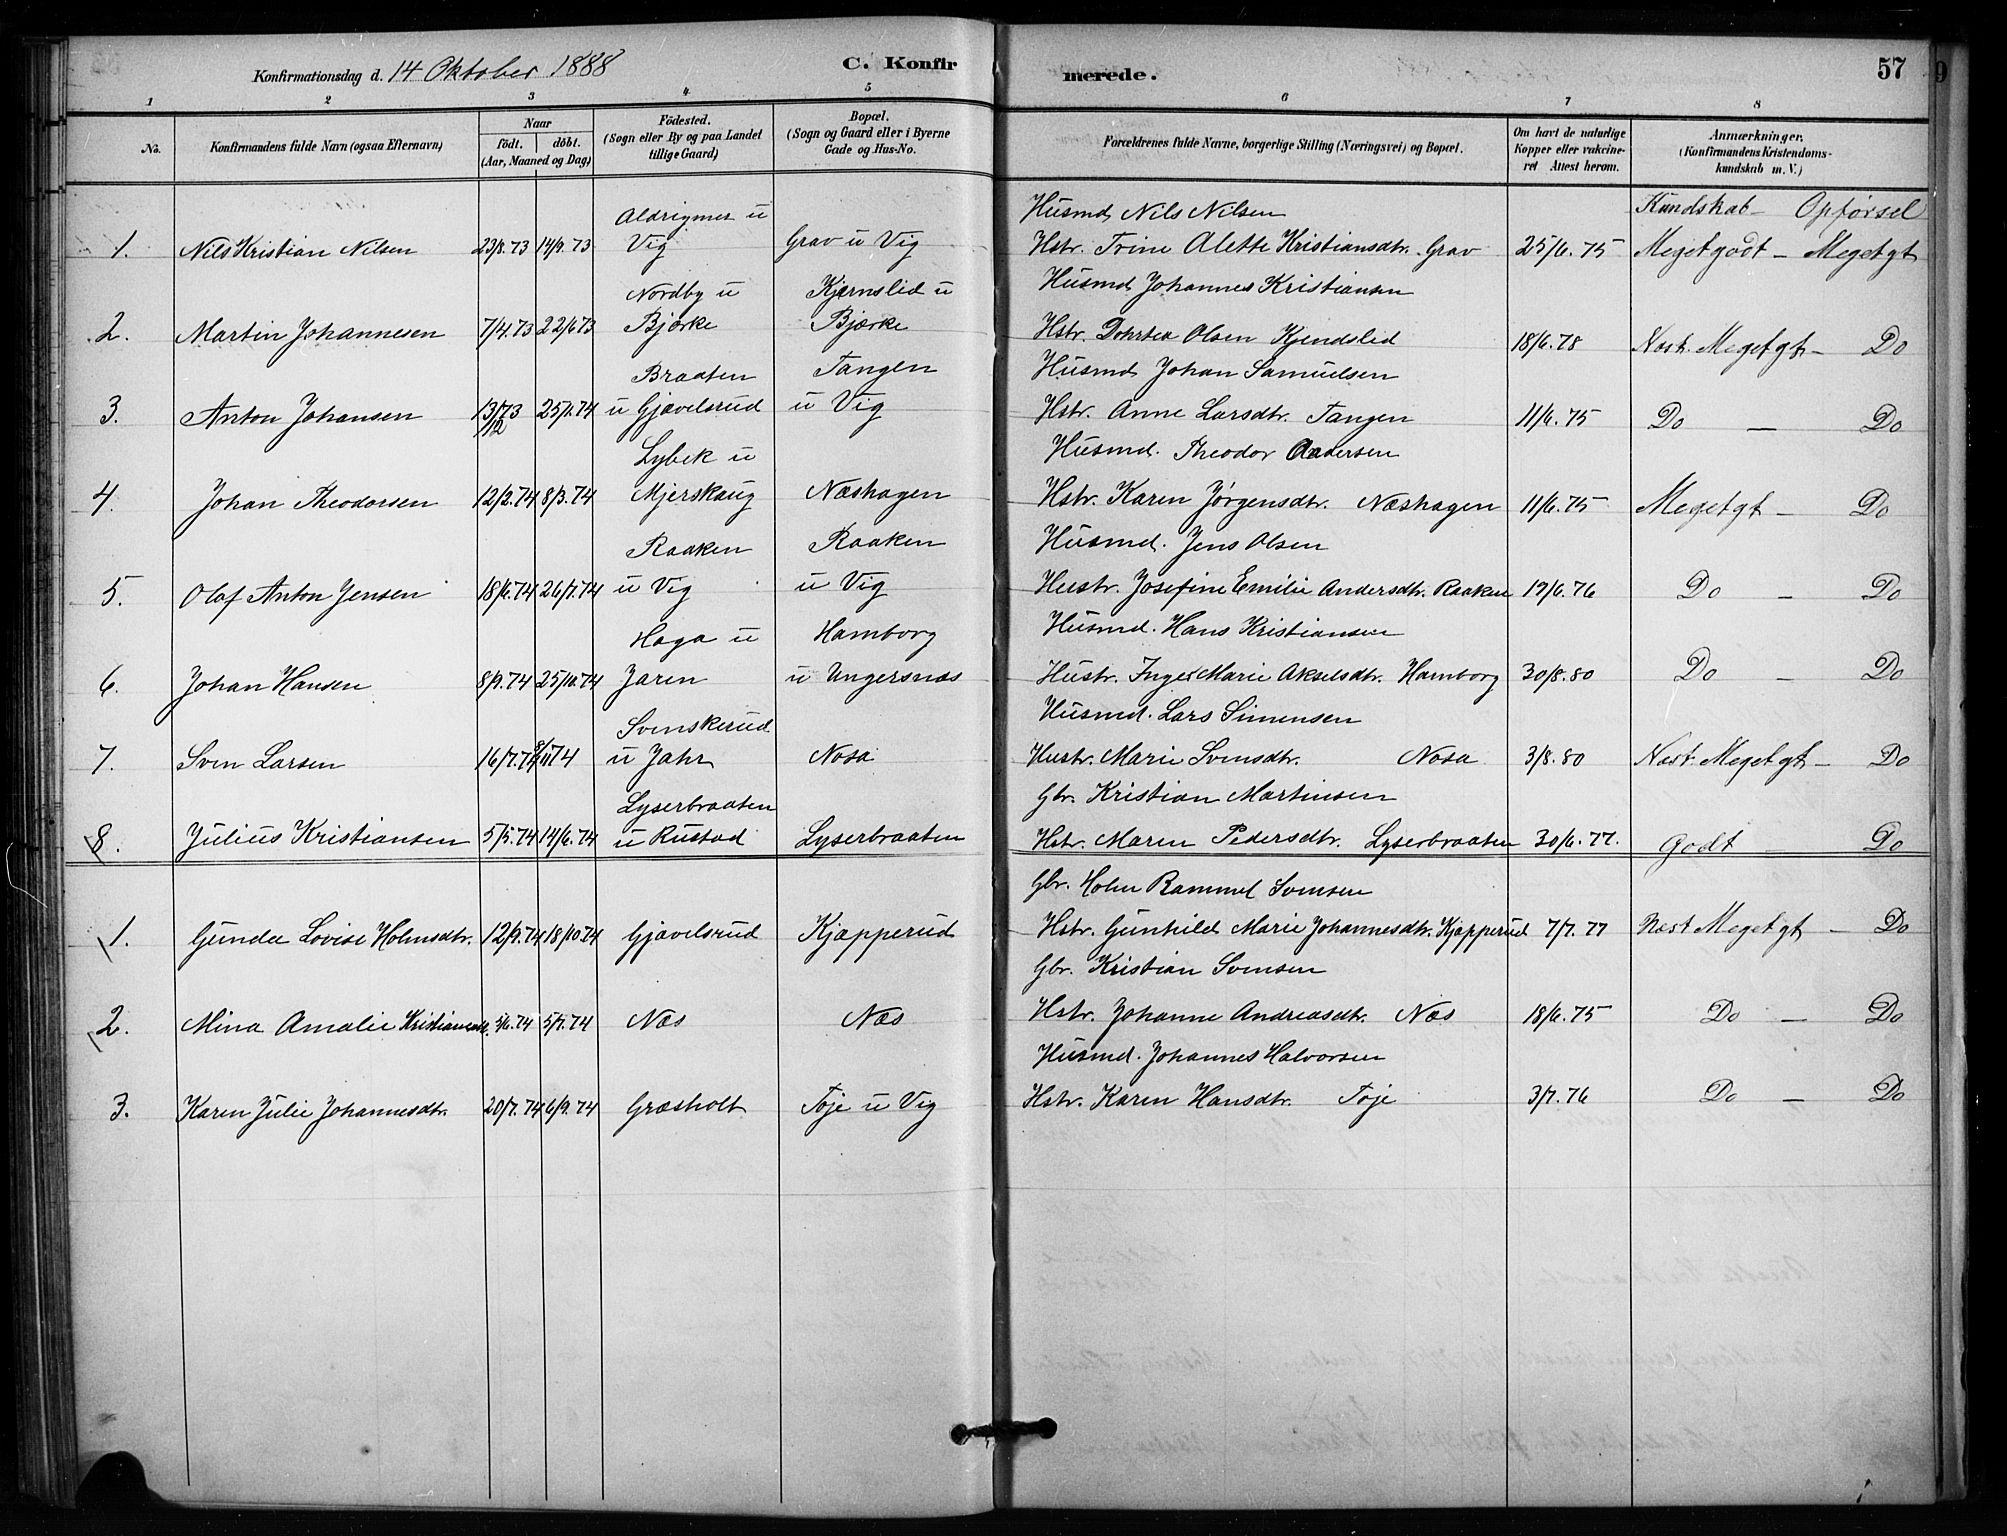 Konfirmationsdag d. 14 Oktober 1888 C. Konfirmerede. 57
1 2 3 4 5 6 7 8
No. Konfirmandens fulde Navn (ogsaa Efternavn) Naar födt. döbt. (Aar, Maaned og Dag) Födested. (Sogn eller By og paa Landet tillige Gaard) Bopæl. (Sogn og Gaard eller i Byerne Gade og Hus-No. Forældrenes fulde Navne, borgerlige Stilling (Næringsvei) og Bopæl. Om havt de naturlige Kopper eller vakcineret Attest herom. Anmærkninger. (Konfirmandens Kristendomskundskab m. V.)
Aldrigmer u Husmd Nils Nilsen Kundskab - Opførsel
1. Nils Kristian Nilsen 23/8.73 14/9.73 Vig Grav u Vig Hstr. Trine Alette Kristiansdtr. Grav 25/6.75 Meget godt - Meget gt
Nordby u Kjernslid u Husmd Johannes Kristiansen
2. Martin Johannesen 7/4.73 22/6 73 Bjørke Bjærke Hstr. Dorthea Olsen Kjendslid 18/6.78 Næst. Meget gt - Do
Braaten Tangen Husmd Johan Samuelsen
3. Anton Johansen 13/12 73 25/1.74 u Gjævelsrud u Vig Hstr. Anne Larsdtr. Tangen 11/6.75 Do - Do
Lybek u Husmd. Theodor Andersen
4. Johan Theodorsen 12/2.74 8/3.74 Mjerskaug Næshagen Hstr. Karen Jørgensdtr. Næshagen 11/6.75 Meget gt - Do
Raaken Raaken Husmd. Jens Olsen
5. Olaf Anton Jensen 18/6.74 26/7.74 u Vig u Vig Hustr. Josefine Emilie Andersdtr. Raaken 19/6.76 Do - Do
Haga u Hamborg Husmd. Hans Kristiansen
6. Johan Hansen 8/9.74 25/10.74 Jaren u Ungersnæs Hustr. Inger Marie Akselsdtr. Hamborg 30/8.80 Do - Do
Svenskerud Husmd. Lars Simensen
7. Sven Larsen 16/7.74 8/11 74 u Jahr Nosa Hustr. Marie Svensdtr. Nosa 3/8.80 Næst. Meget gt - Do
Lyserbraaten Gbr. Kristian Martinsen
8. Julius Kristiansen 5/5.74 14/6.74 u Rustad Lyserbraaten Hstr. Maren Pedersdtr. Lyserbraaten 30/6.77. Godt - Do
Gbr. Holm Rammel Svensen
1. Gunda Lovise Holmsdtr. 12/9.74 18/10.74 Gjævelsrud Kjapperud Hstr. Gunhild Marie Johannesdtr. Kjapperud 7/7.77 Næst Meget gt - Do
Gbr. Kristian Svensen
2. Mina Amalie Kristiansdt. 5/6.74 5/7.74 Næs Næs Hstr. Johanne Andreasdtr. Næs 18/6.75 Do - Do
Husmd. Johannes Halvorsen
3. Karen Julie Johannesdtr. 20/7.74 6/9.74 Græsholt Tøje u Vig Hstr. Karen Hansdtr. Tøje 3/7.76 Do - Do